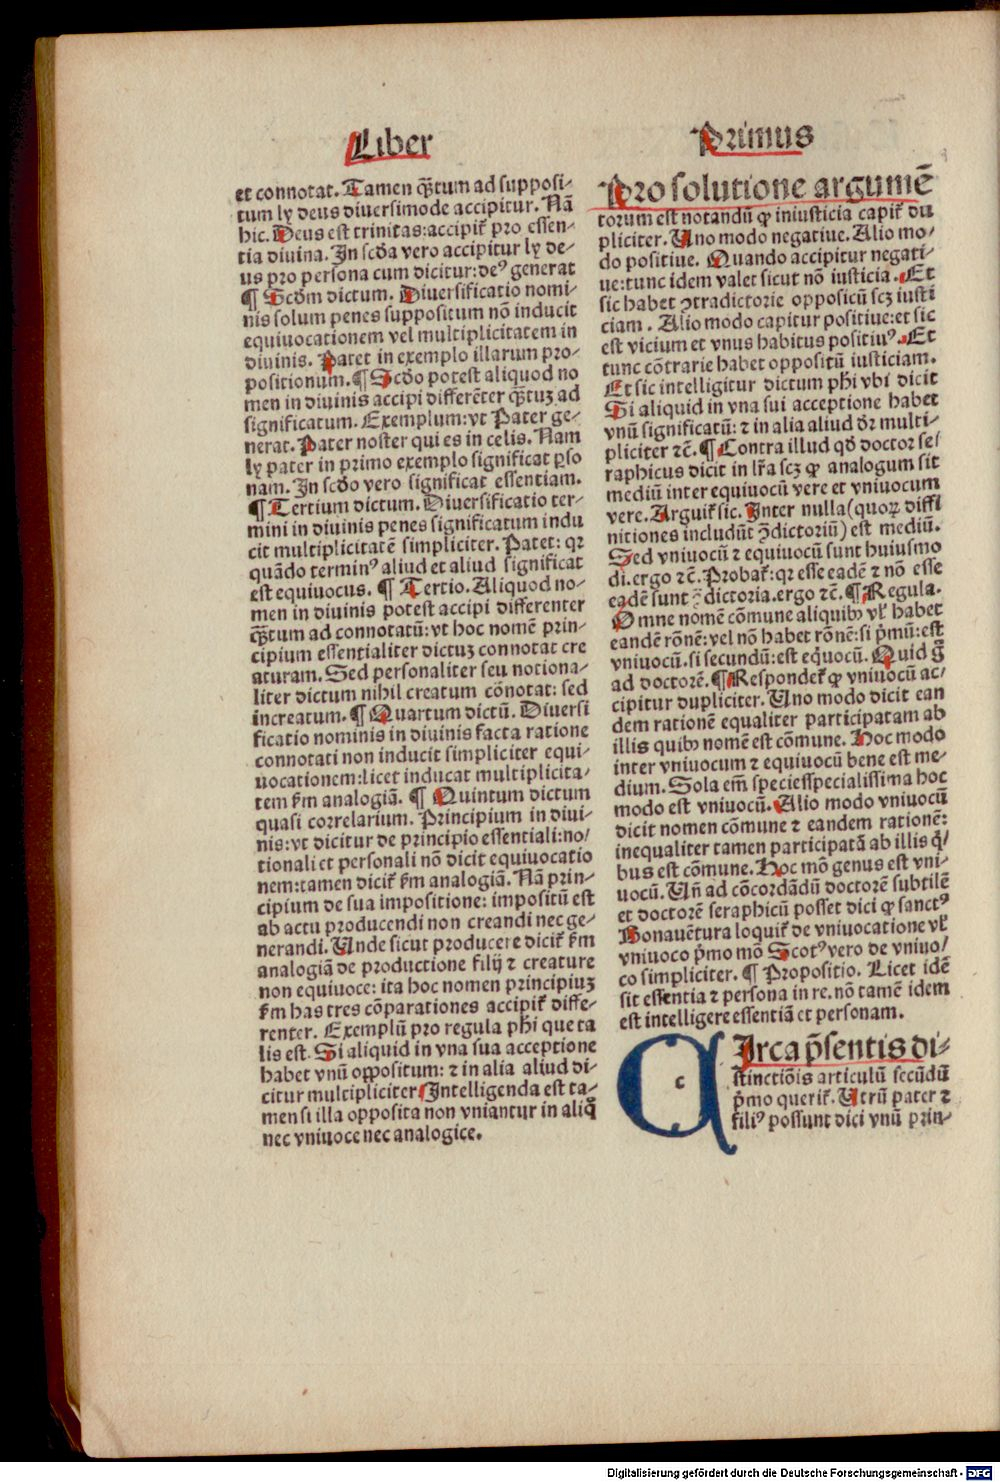 Liber
et connotat. Tamen q̄tum ad supposi-
tum ly deus diuersimode accipitur. Nā
hic. Deus est trinitas: accipit᷑ pro essen-
tia diuina. In scd̄a vero accipitur ly de-
us pro persona cum dicitur: deꝰ generat
¶ Scd̄m dictum. Diuersificatio nomi-
nis solum penes suppositum nō inducit
equiuocationem vel multiplicitatem in
diuinis. Patet in exemplo illarum pro-
positionum. ¶ Scd̄o potest aliquod no
men in diuinis accipi differēter q̄tuꝫ ad
significatum. Exemplum: vt Pater ge-
nerat. Pater noster qui es in celis. Nam
ly pater in primo exemplo significat ꝑso
nam. In scd̄o vero significat essentiam.
¶ Tertium dictum. Diuersificatio ter-
mini in diuinis penes significatum indu
cit multiplicitatē simpliciter. Patet: qꝛ
quādo terminꝰ aliud et aliud significat
est equiuocus. ¶ Tertio. Aliquod no-
men in diuinis potest accipi differenter
q̄tum ad connotatū: vt hoc nomē prin-
cipium essentialiter dictuꝫ connotat cre
aturam. Sed personaliter seu notiona-
liter dictum nihil creatum cōnotat: sed
increatum. ¶ Quartum dictū. Diuersi
ficatio nominis in diuinis facta ratione
connotati non inducit simpliciter equi-
uocationem: licet inducat multiplicita-
tem ẜm analogiā. ¶ Quintum dictum
quasi correlarium. Principium in diui-
nis: vt dicitur de principio essentiali: no-
tionali et personali nō dicit equiuocatio
nem: tamen dicit᷑ ẜm analogiā. Nā prin-
cipium de sua impositione: impositū est
ab actu producendi non creandi nec ge-
nerandi. Unde sicut producere dicit᷑ ẜm
analogiā de productione filij ⁊ creature
non equiuoce: ita hoc nomen principiuꝫ
ẜm has tres cōparationes accipit᷑ diffe-
renter. Exemplū pro regula ph̄i que ta
lis est. Si aliquid in vna sua acceptione
habet vnū oppositum: ⁊ in alia aliud di-
citur multipliciter Intelligenda est ta-
men si illa opposita non vniantur in aliq̄
nec vniuoce nec analogice.
Primus
Pro solutione argumē
torum est notandū ꝙ iniusticia capit᷑ du
pliciter. Uno modo negatiue. Alio mo-
do positiue. Quando accipitur negati-
ue: tunc idem valet sicut nō iusticia. Et
sic habet ꝯtradictorie opposicū scꝫ iusti
ciam. Alio modo capitur positiue: et sic
est vicium et vnus habitus positiuꝰ. Et
tunc cōtrarie habet oppositū iusticiam.
Et sic intelligitur dictum ph̄i vbi dicit
Si aliquid in vna sui acceptione habet
vnū significatū: ⁊ in alia aliud dr̄ multi-
pliciter ⁊c̄. ¶ Contra illud qd̄ doctor se-
raphicus dicit in lr̄a scꝫ ꝙ analogum sit
mediū inter equiuocū vere et vniuocum
vere. Arguit᷑ sic. Inter nulla (quoꝝ diffi
nitiones includūt ꝯ̄dictoriū) est mediū.
Sed vniuocū ⁊ equiuocū sunt huiusmo
di. ergo ⁊c̄. Probat᷑: qꝛ esse eadē ⁊ nō esse
eadē sunt ꝯ̄dictoria. ergo ⁊c̄. ¶ Regula.
Omne nomē cōmune aliquibꝰ vl᷑ habet
eandē rōnē: vel nō habet rōnē: si p̄mū: est
vniuocū. si secundū: est eq̄uocū. Quid ḡ
ad doctorē. ¶ Respondet᷑ ꝙ vniuocū ac-
cipitur dupliciter. Uno modo dicit ean
dem rationē equaliter participatam ab
illis quibꝰ nomē est cōmune. Hoc modo
inter vniuocum ⁊ equiuocū bene est me-
dium. Sola em̄ speciesspecialissima hoc
modo est vniuocū. Alio modo vniuocū
dicit nomen cōmune ⁊ eandem rationē:
inequaliter tamen participatā ab illis q̄-
bus est cōmune. Hoc mō genus est vni-
uocū. Un̄ ad cōcordādū doctorē subtilē
et doctorē seraphicū posset dici ꝙ sanctꝰ
Bonauētura loquit᷑ de vniuocatione vl᷑
vniuoco p̄mo mō Scotꝰ vero de vniuo-
co simpliciter. ¶ Propositio. Licet idē
sit essentia ⁊ persona in re. nō tamē idem
est intelligere essentiā et personam.
Circa p̄sentis di-
stinctiōis articulū secūdū
p̄mo querit᷑. Utrū pater ⁊
filiꝰ possunt dici vnū prin-
Digitalisierung gefördert durch die Deutsche Forschungsgemeinschaft - DFG